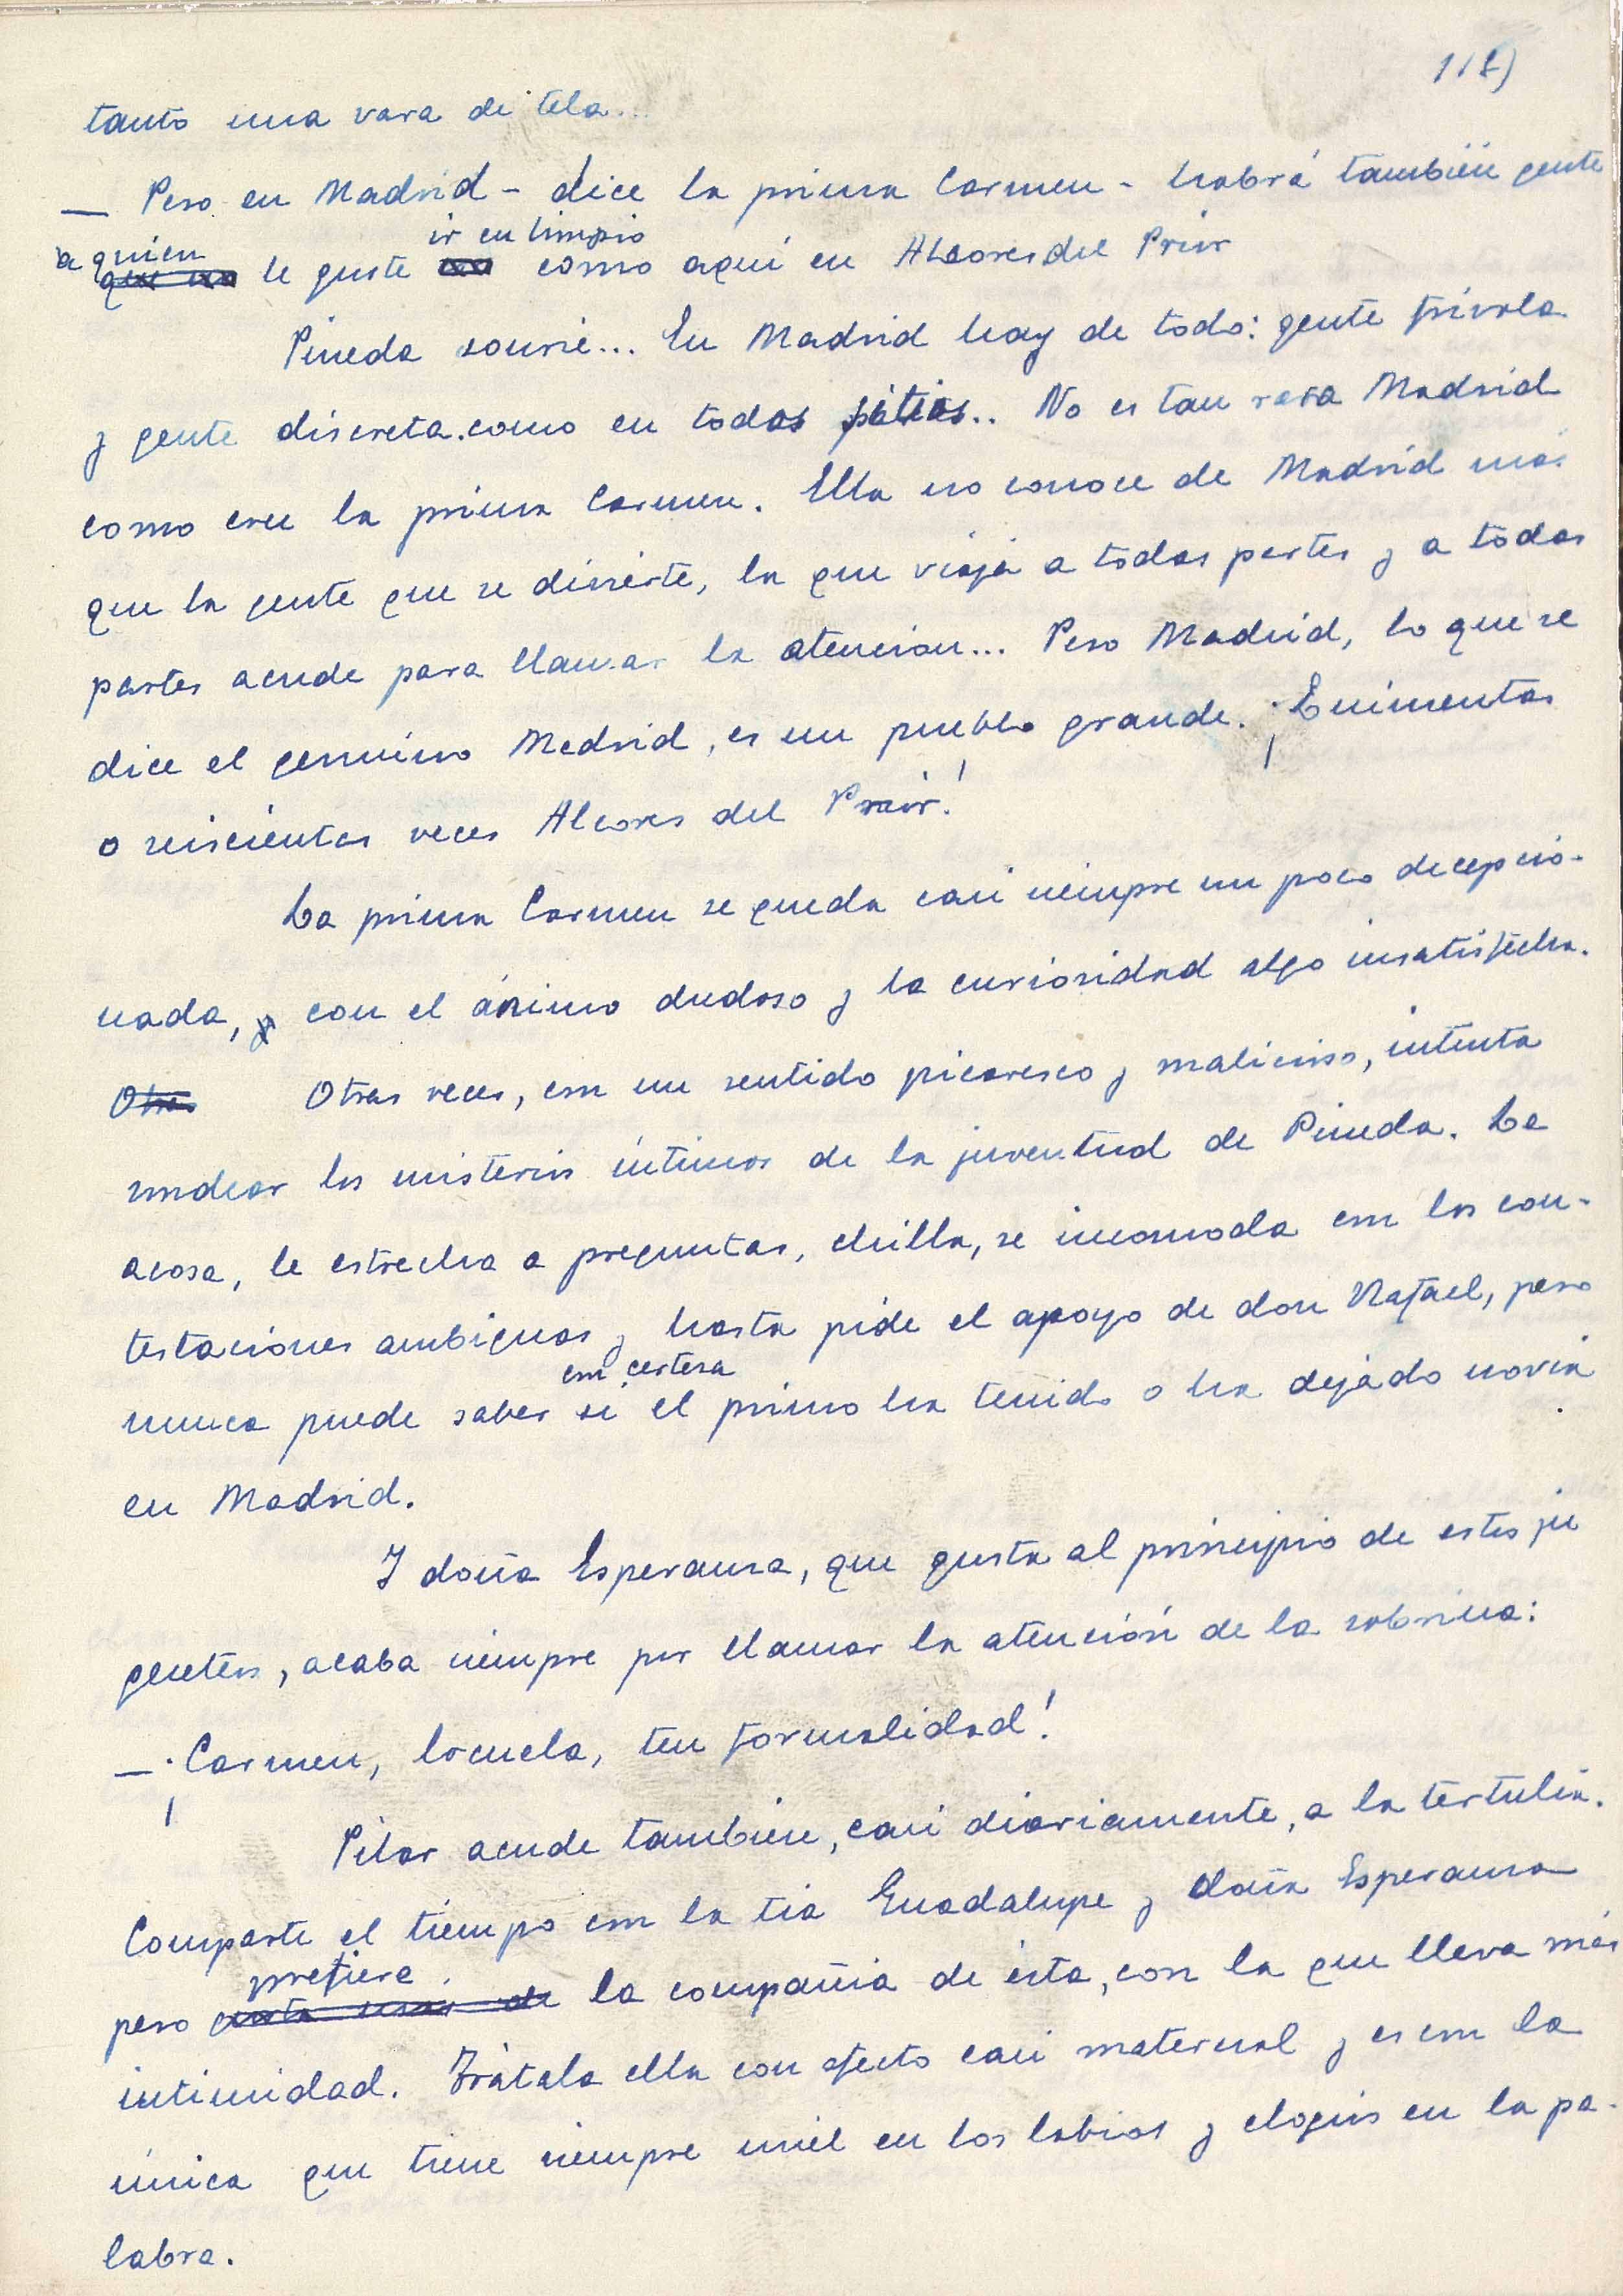 118)
tanto una vara de tela...
— Pero en Madrid - dice la prima Carmen - habrá también gente
a quien ir en limpio
que no le guste como aquí en Alcores del Prior
Pineda sonríe... En Madrid hay de todo: gente frívola
y gente discreta.como en todos sitios.. No es tan rara Madrid
como cree la prima Carmen. Ella no conoce de Madrid más
que la gente que se divierte, la que viaja a todas partes y a todas
partes acude para llamar la atención... Pero Madrid, lo que se
dice el genuino Madrid, es un pueblo grande. ¡Quinientas
o seiscientas veces Alcores del Prior!
La prima Carmen se queda casi siempre un poco decepcio-
nada, y con el ánimo dudoso y la curiosidad algo insatisfecha.
Otras Otras veces, con un sentido picaresco y malicioso, intenta
sondear los misterios íntimos de la juventud de Pineda. Le
acosa, le estrecha a preguntas, chilla, se incomoda con las con-
testaciones ambiguas y hasta pide el apoyo de don Rafael, pero
con certeza
nunca puede saber si el primo ha tenido o ha dejado novia
en Madrid.
Y doña Esperanza, que gusta al principio de estos ju
gueteos, acaba siempre por llamar la atención de la sobrina:
— ¡Carmen, locuela, ten formalidad!
Pilar acude también, casi diariamente, a la tertulia.
Comparte el tiempo con la tía Guadalupe y doña Esperanza
prefiere
pero gusta más de la compañía de ésta, con la que lleva más
intimidad. Trátala ella con afecto casi maternal y es con la
única que tiene siempre miel en los labios y elogios en la pa-
labra.